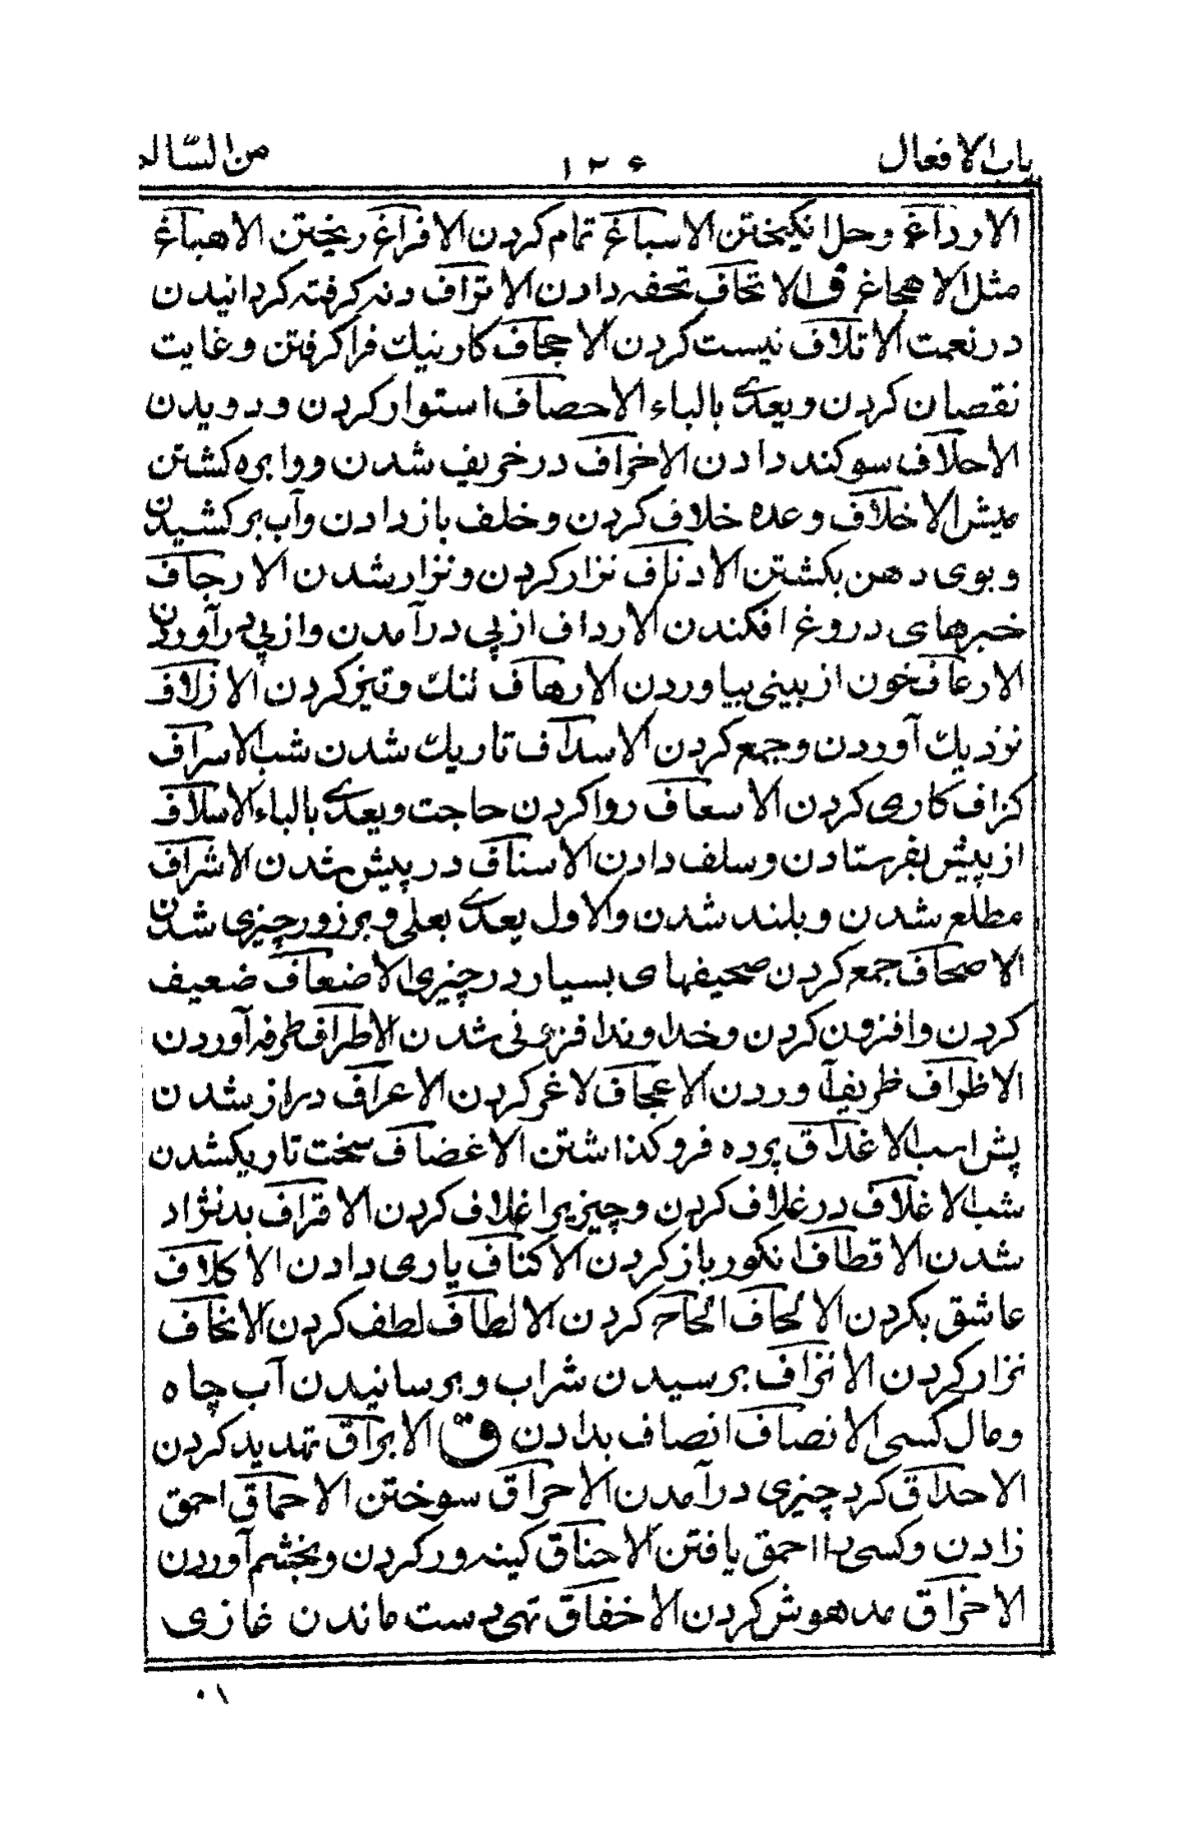 باب الافعال ۱۲۶ من السّالم
الارداغ وحل انکیختن الاسباغ تمام کردن الافراغ ریختن الاهباغ
مثل الاهجاغ ف الاتحاف تحفه دادن الاتراف دنه کرفته کردانیدن
در نعمت الاتلاف نیست کردن الاجحاف کار نیك فرا کرفتن وغایت
نقصان کردن ویعدی بالباء الاحصاف استوار کردن ودویدن
الاحلاف سوکند دادن الاخراف در خریف شدن ووابره کشتن
میش الاخلاف وعده خلاف کردن وخلف باز دادن وآب برکشیدن
وبوی دهن بکشتن الادناف نزار کردن ونزار شدن الارجاف
خبرهای دروغ افکندن الارداف از پی درآمدن واز پی درآوردن
الارعاف خون از بینی بیاوردن الارهاف تنك وتیز کردن الازلاف
نزدیك آوردن وجمع کردن الاسداف تاریك شدن شب الاسراف
کزاف کاری کردن الاسعاف روا کردن حاجت ویعدی بالباء الاسلاف
از پیش بفرستادن وسلف دادن الاسناف در پیش شدن الاشراف
مطلع شدن وبلند شدن والاول یعدی بعلی وبر زور چیزی شدن
الاصحاف جمع کردن صحیفهای بسیار در چیزی الاضعاف ضعیف
کردن وافزون کردن وخداوند افزونی شدن الاطراف طرفه آوردن
الاظراف ظریف آوردن الاعجاف لاغر کردن الاعراف دراز شدن
پش اسب الاغداق پرده فرو کذاشتن الاغضاف سخت تاریکشدن
شب الاغلاف در غلاف کردن وچیزیرا غلاف کردن الاقراف بدنژاد
شدن الاقطاف انکور باز کردن الاکناف یاری دادن الاکلاف
عاشق بکردن الالحاف الحاح کردن الالطاف لطف کردن الانحاف
نزار کردن الانزاف برسیدن شراب وبرسانیدن آب چاه
ومال کسی الانصاف انصاف بدادن ق الابراق تهدید کردن
الاحداق کرد چیزی درآمدن الاحراق سوختن الاحماق احمق
زادن وکسی را احمق یافتن الاحناق کینه ور کردن وبخشم آوردن
الاخراق مدهوش کردن الاخفاق تهی دست ماندن غازی
۰۱